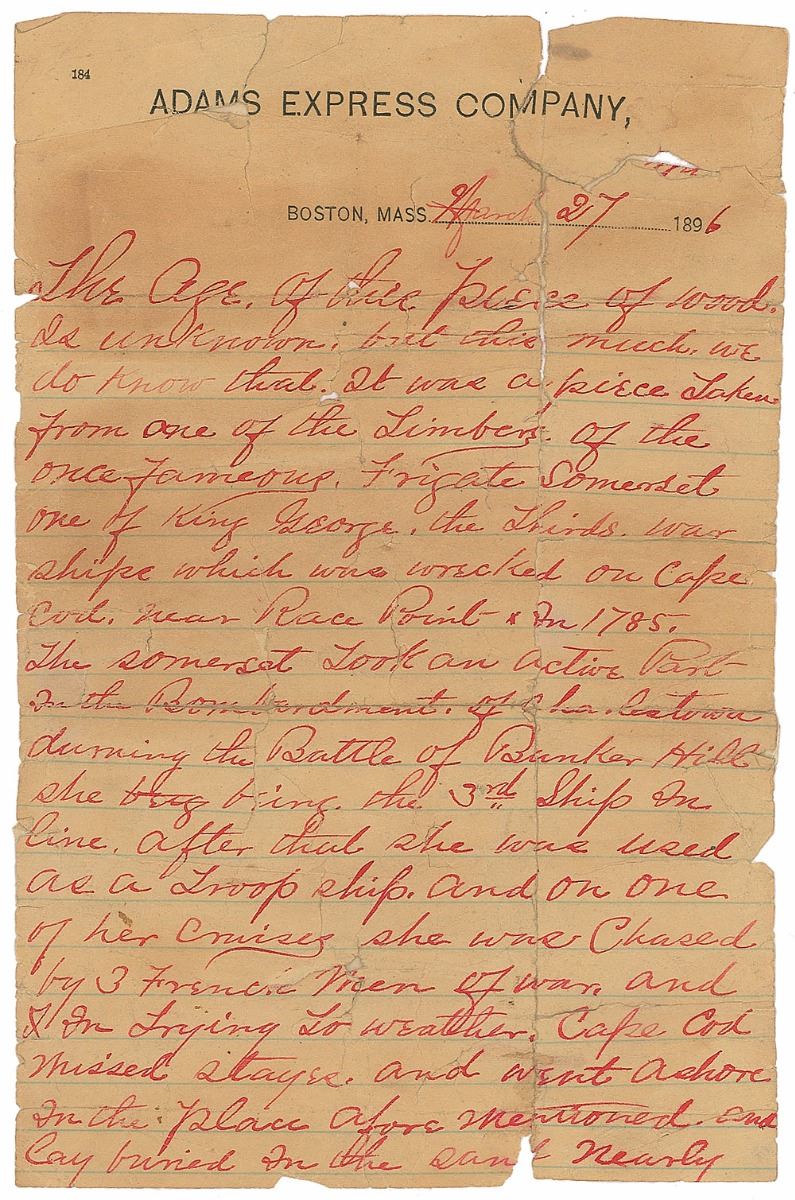 184
ADAMS EXPRESS COMPANY,
BOSTON, MASS. March 27 1896
The Age. of this piece of wood.
Is unknown. but this much. we
do know that. It was a piece Taken
from one of the Timbers. of the
once fameous. Frigate Somerset
one of King George. the Thirds. war
ships which was wrecked on Cape
Cod. near Race Point & In 1785.
The somerset Took an active Part
In the Bombardment. of Charlestown
durning the Battle of Bunker Hill
she being. the 3rd Ship In
line. after that she was used
as a Troop ship. and on one
of her Cruises she was Chased
by 3 French Men of war. and
& In Trying To weather. Cape Cod
missed stayes. and went Ashore
In the Place afore mentioned. and
lay buried In the sand nearly